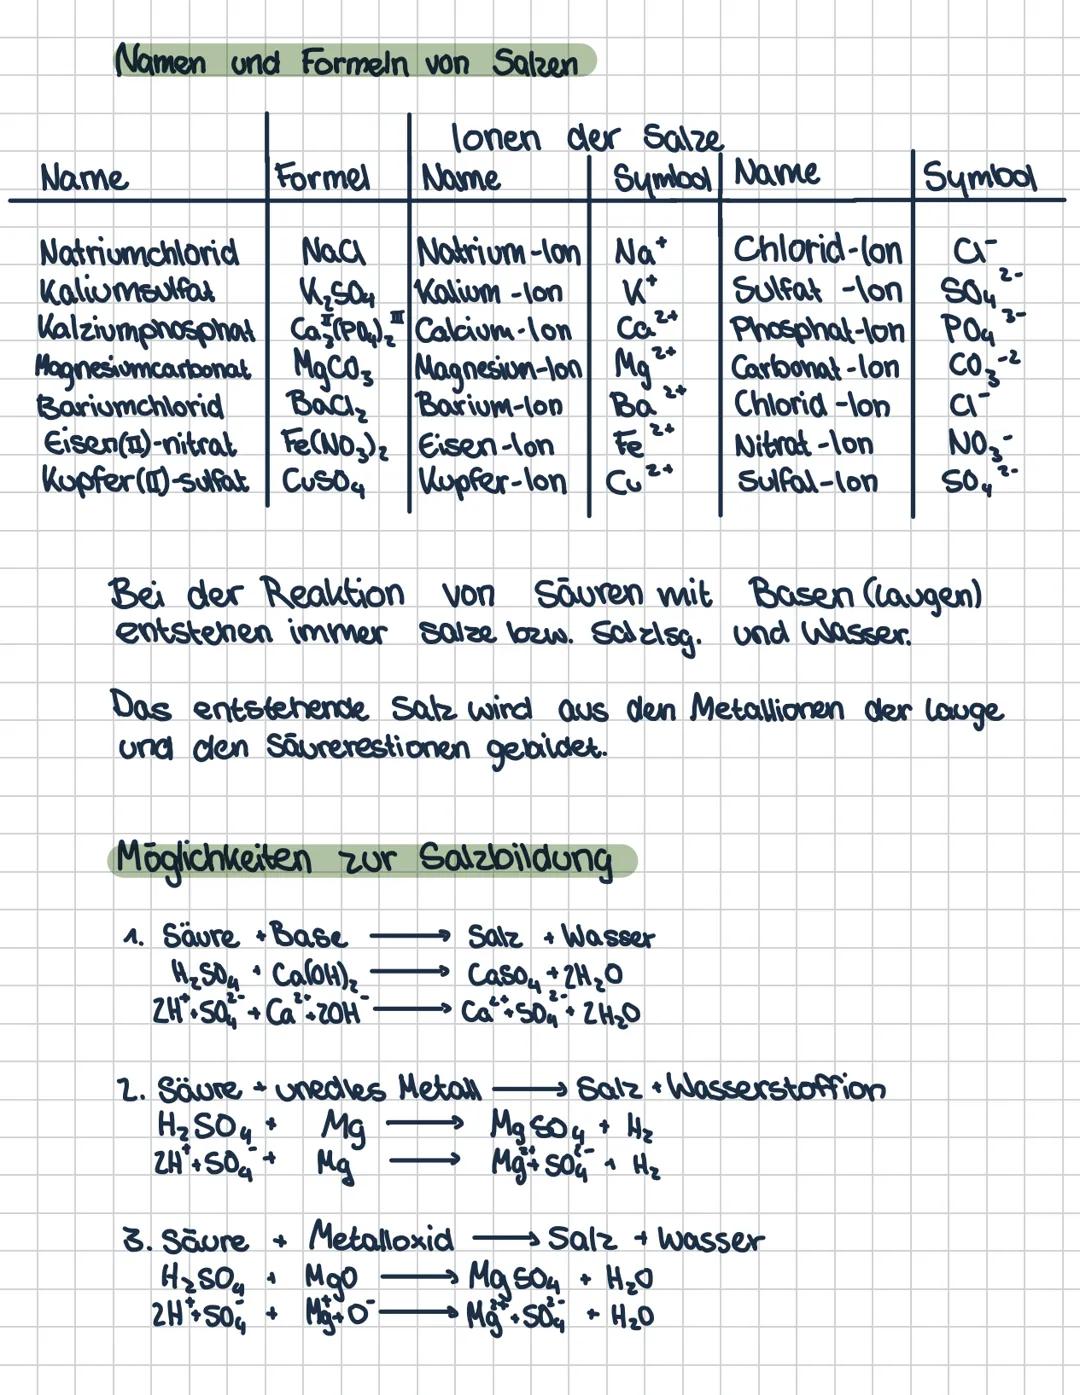 Namen und Formeln von Salzen
Ionen der Salze
Name Formel Name Symbol Name Symbol
Natriumchlorid NaCl Natrium-Ion Na⁺ Chlorid-Ion Cl⁻
Kaliumsulfat K₂SO₄ Kalium-Ion K⁺ Sulfat-Ion SO₄²⁻
Kalziumphosphat Ca₃ᴵᴵ(PO₄)₂ᴵᴵᴵ Calcium-Ion Ca²⁺ Phosphat-Ion PO₄³⁻
Magnesiumcarbonat MgCO₃ Magnesium-Ion Mg²⁺ Carbonat-Ion CO₃⁻²
Bariumchlorid BaCl₂ Barium-Ion Ba²⁺ Chlorid-Ion Cl⁻
Eisen(II)-nitrat Fe(NO₃)₂ Eisen-Ion Fe²⁺ Nitrat-Ion NO₃⁻
Kupfer(II)-sulfat CuSO₄ Kupfer-Ion Cu²⁺ Sulfal-Ion SO₄²⁻
Bei der Reaktion von Säuren mit Basen (Laugen)
entstehen immer Salze bzw. Salzlsg. und Wasser.
Das entstehende Salz wird aus den Metallionen der Lauge
und den Säurerestionen gebildet.
Möglichkeiten zur Salzbildung
1. Säure + Base ⟶ Salz + Wasser
H₂SO₄ + Ca(OH)₂ ⟶ CaSO₄ + 2H₂O
2H⁺ + SO₄²⁻ + Ca²⁺ + 2OH⁻ ⟶ Ca²⁺ + SO₄²⁻ + 2H₂O
2. Säure + unedles Metall ⟶ Salz + Wasserstoffion
H₂SO₄ + Mg ⟶ MgSO₄ + H₂
2H⁺ + SO₄⁻ + Mg ⟶ Mg²⁺ + SO₄²⁻ + H₂
3. Säure + Metalloxid ⟶ Salz + Wasser
H₂SO₄ + MgO ⟶ MgSO₄ + H₂O
2H⁺ + SO₄⁻ + Mg⁺ + O⁻ ⟶ Mg²⁺ + SO₄²⁻ + H₂O